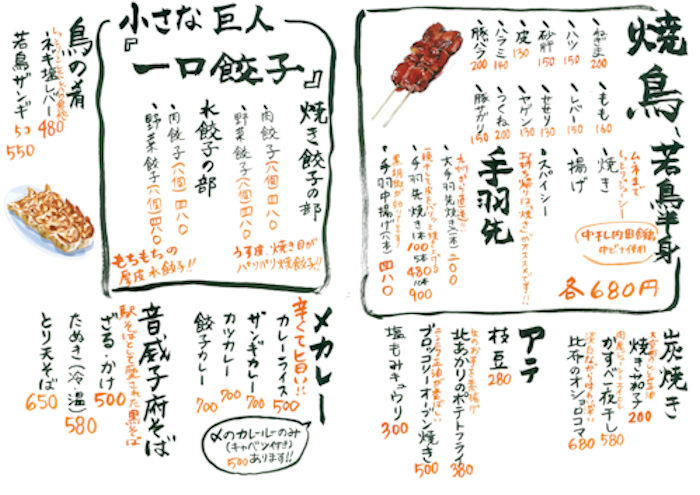 焼鳥
ねぎま 160
ハツ 150
砂肝 150
皮 130
ハラミ 140
豚バラ 200
もも 160
レバー 150
セセリ 130
ヤゲン 130
つくね 200
豚サガリ 150
若鳥半身
焼き
揚げ
スパイシー
中札内田舎鶏
中ビナ使用
各680円
手羽先
大手羽先焼き(一本) 二〇〇
手羽先焼き 1本 100
5本 480
10本 900
手羽中揚げ(八本) 四八〇
小さな巨人
『一口餃子』
焼き餃子の部
肉餃子(八個) 四八〇
野菜餃子(八個) 四八〇
うす皮、焼き目が
パリパリ焼餃子!!
水餃子の部
肉餃子(八個) 四八〇
野菜餃子(八個) 四八〇
もちもちの
厚皮水餃子!!
鳥の肴
ネギ塩レバー 480
若鳥ザンギ
550
炭焼き
200
かすべ一夜干し 580
比布のオショロコマ 680
アテ
枝豆 280
北あかりのポテトフライ 380
ブロッコリーオーブン焼き 500
塩もみキュウリ 300
〆カレー
辛くて旨い!!
カレーライス 500
ザンギカレー 700
カツカレー 700
餃子カレー 700
〆のカレールーのみ
(キャベツ付き)
500あります!!
音威子府そば
駅そばとして愛された黒そば
ざる・かけ 500
たぬき(冷・温) 580
とり天そば 650